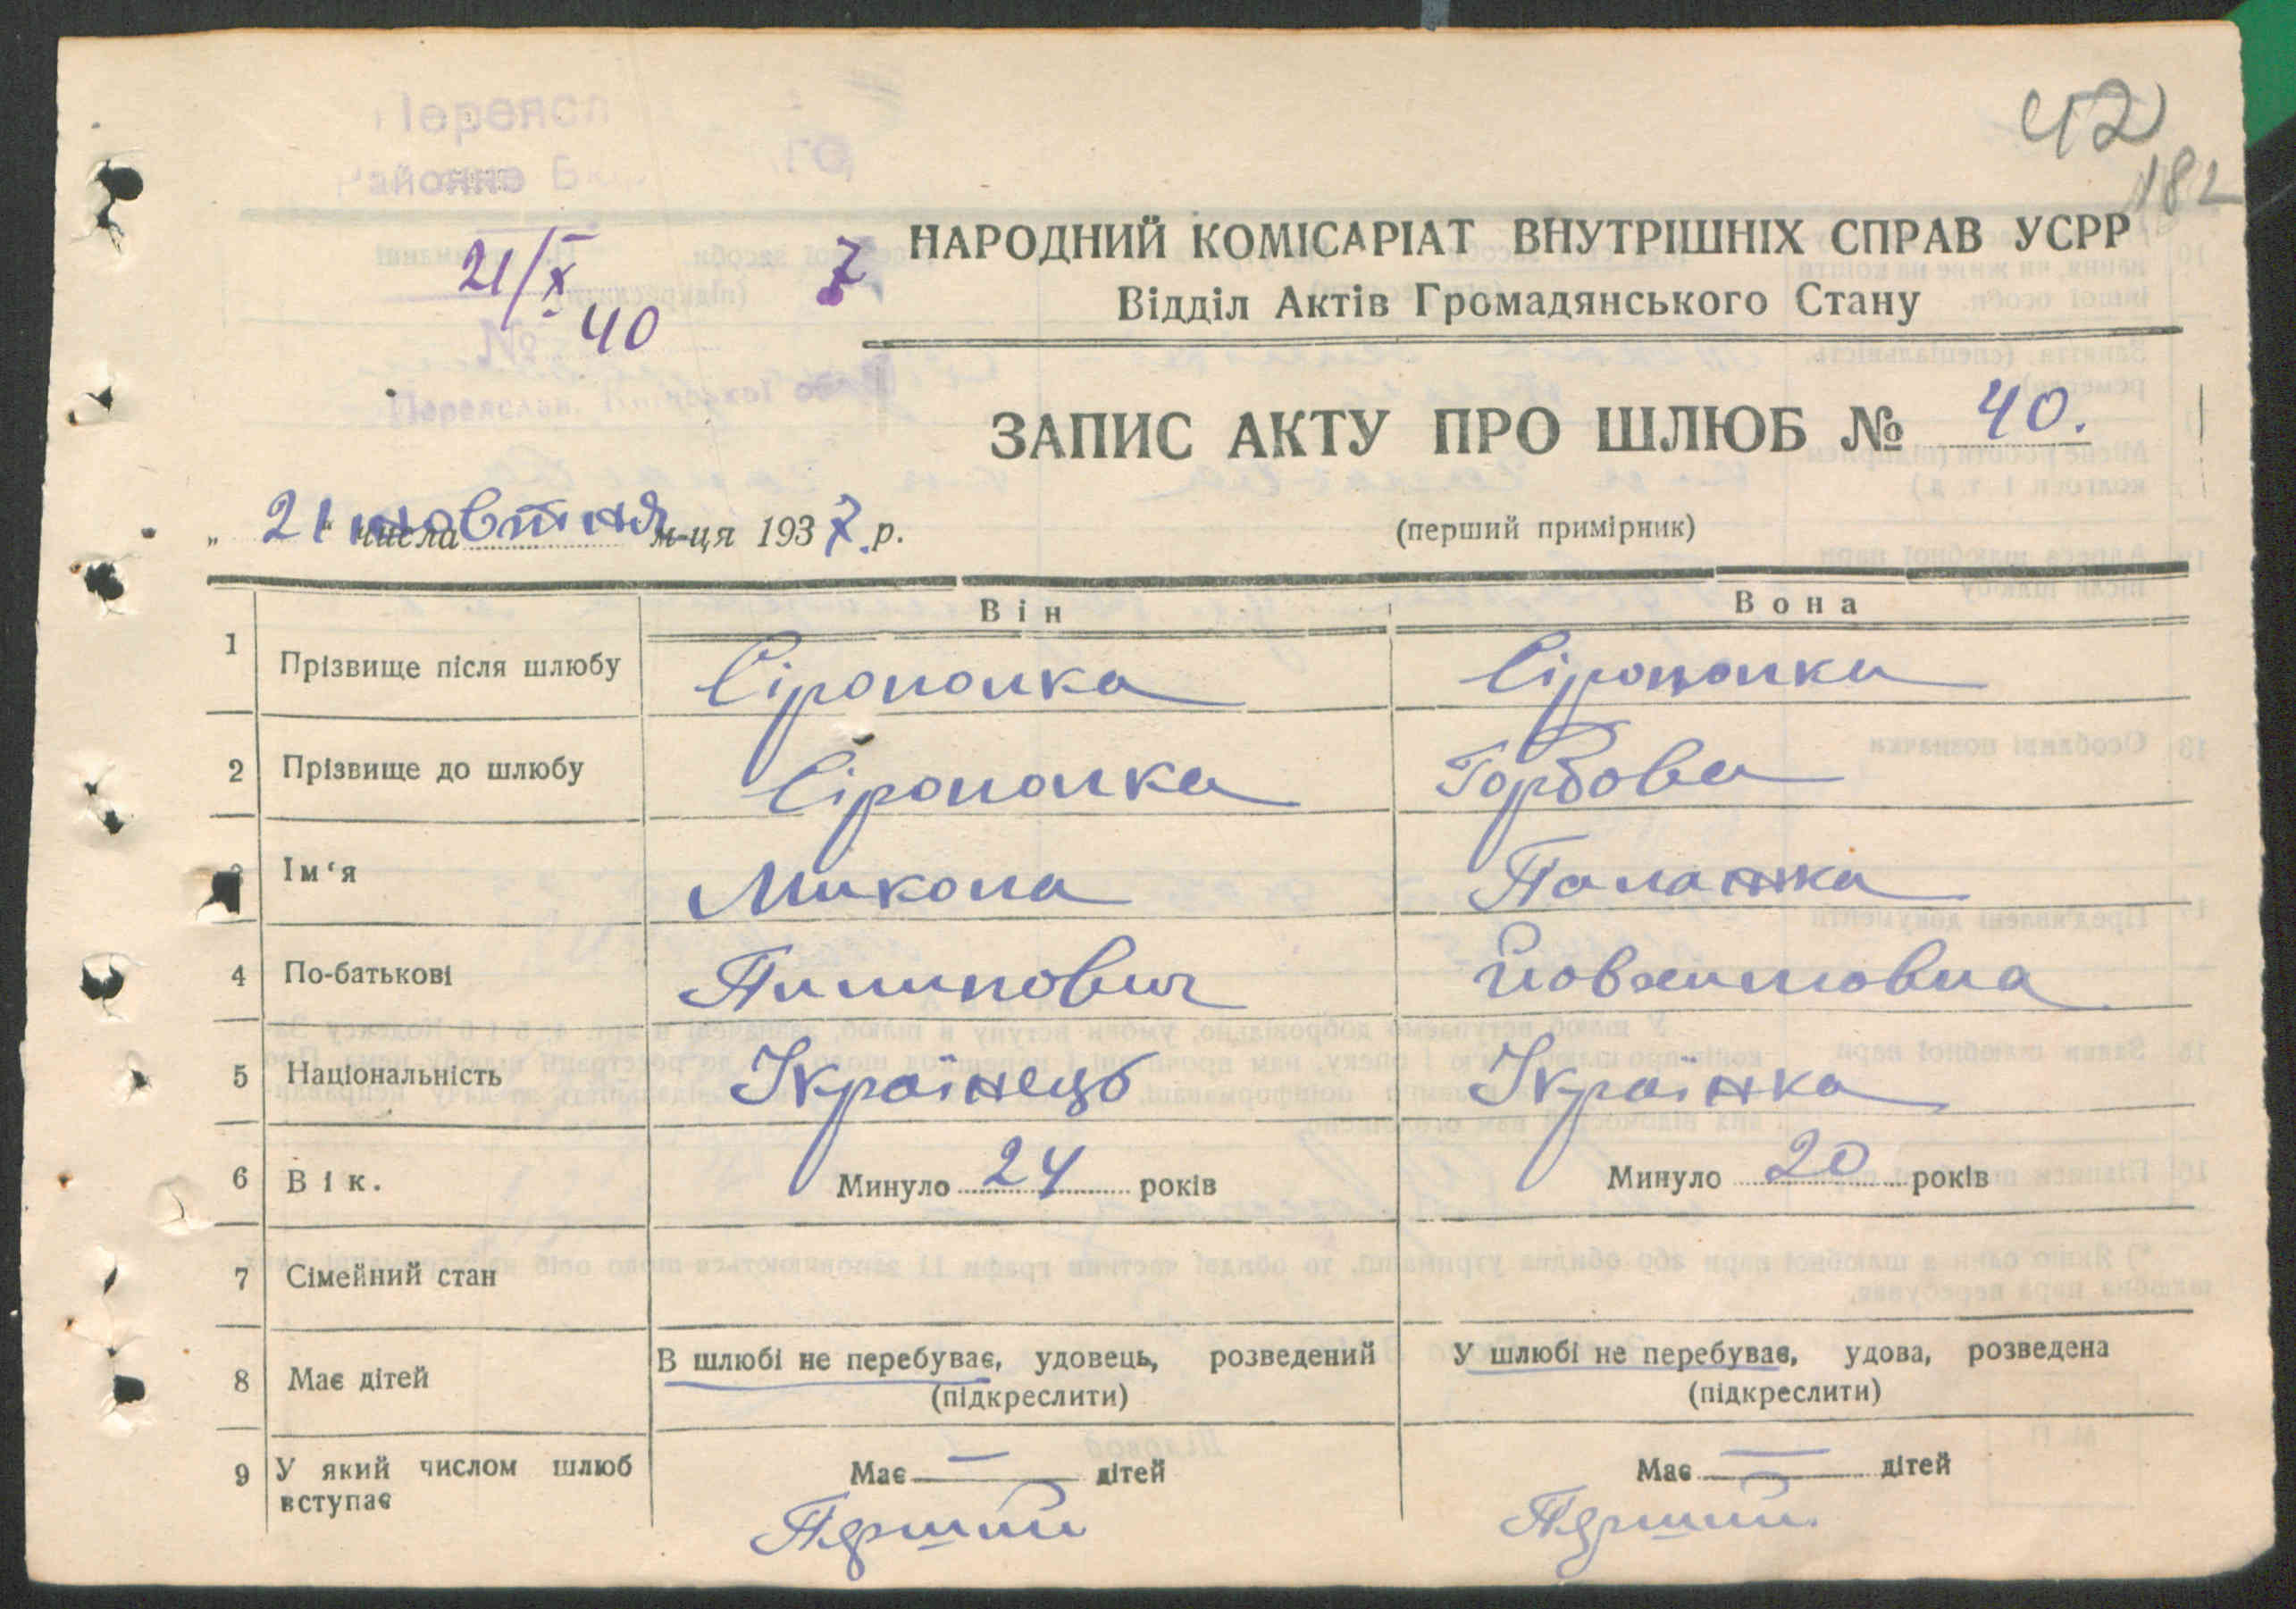 42
182
НАРОДНИЙ КОМІСАРІАТ ВНУТРІШНІХ СПРАВ УСРР
21/X 7
Відділ Актів Громадянського Стану
№ 40
ЗАПИС АКТУ ПРО ШЛЮБ № 40.
„ 21 " числа жовтня м-ця 1937 р.
(перший примірник)
Він Вона
1 Прізвище після шлюбу Сірополка Сірополка
2 Прізвище до шлюбу Сірополка Горбова
3 Ім‘я Микола Палажка
4 По-батькові Пилипович Йовхимовна
5 Національність Українець Українка
6 Вік. Минуло 24 років Минуло 20 років
7 Сімейний стан
8 Має дітей В шлюбі не перебуває, удовець, розведений У шлюбі не перебуває, удова, розведена
(підкреслити) (підкреслити)
9 У який числом шлюб вступає Має — дітей Має — дітей
Перший Перший.